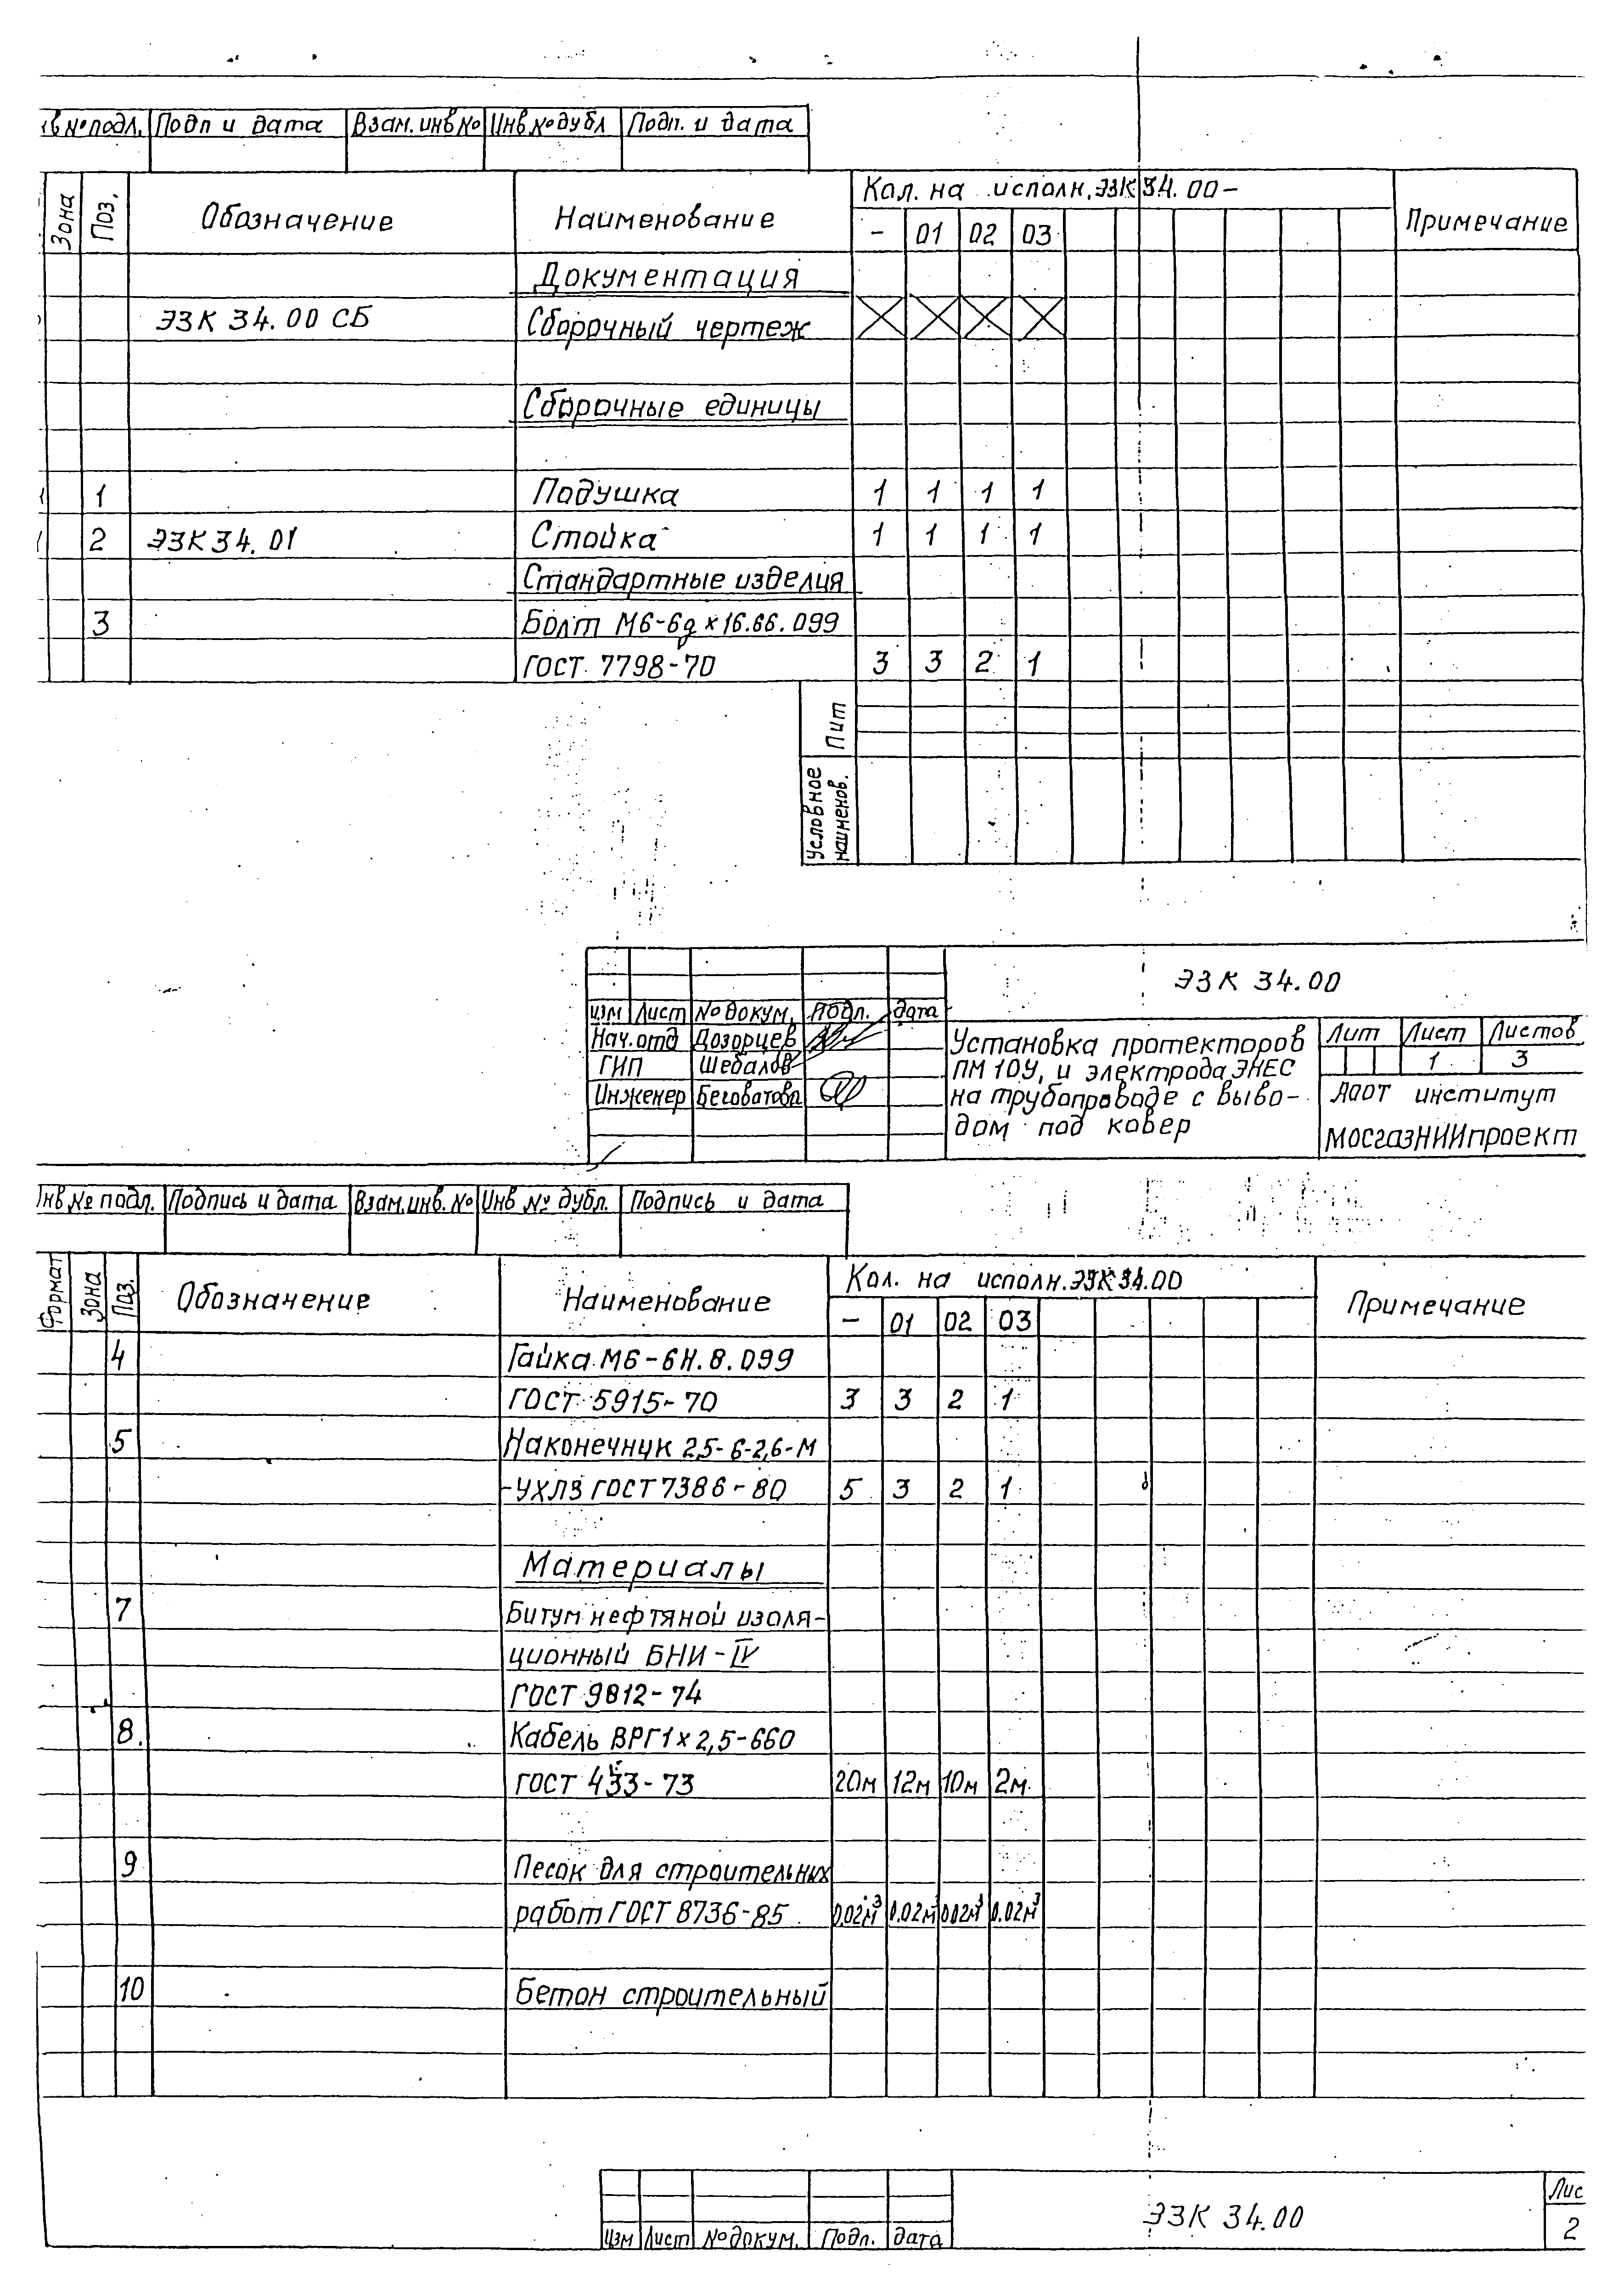 в № подл. Подп и дата Взам. инв № Инв № дубл Подп. и дата
Зона Поз. Обозначение Наименование Кол. на исполн. ЭЗК 34.00- Примечание
- 01 02 03
Документация
ЭЗК 34.00 СБ Сборочный чертеж
Сборочные единицы
1 Подушка 1 1 1 1
2 ЭЗК 34.01 Стойка 1 1 1 1
Стандартные изделия
3 Болт М6-6g×16.66.099
ГОСТ 7798-70 3 3 2 1
Лит
Условное наименов.
ЭЗК 34.00
изм Лист № докум. Подп. дата
Нач. отд Дозорцев
ГИП Шебалов
Инженер Беговатова
Установка протекторов
ПМ 10У, и электрода ЭНЕС
на трубопроводе с выво-
дом под ковер
Лит Лист Листов
1 3
АООТ институт
МосгазНИИпроект
Инв № подл. Подпись и дата Взам. инв. № Инв № дубл. Подпись и дата
Формат Зона Поз. Обозначение Наименование Кол. на исполн. ЭЗК 34.00 Примечание
- 01 02 03
4 Гайка М6-6Н.8.099
ГОСТ 5915-70 3 3 2 1
5 Наконечник 2,5-6-2,6-М
-УХЛ3 ГОСТ 7386-80 5 3 2 1
Материалы
7 Битум нефтяной изоля-
ционный БНИ-IV
ГОСТ 9812-74
8. Кабель ВРГ1×2,5-660
ГОСТ 433-73 20м 12м 10м 2м
9 Песок для строительных
работ ГОСТ 8736-85 0.02м³ 0.02м³ 0.02м³ 0.02м³
10 Бетон строительный
изм Лист № докум. Подп. дата
ЭЗК 34.00
Лис
2